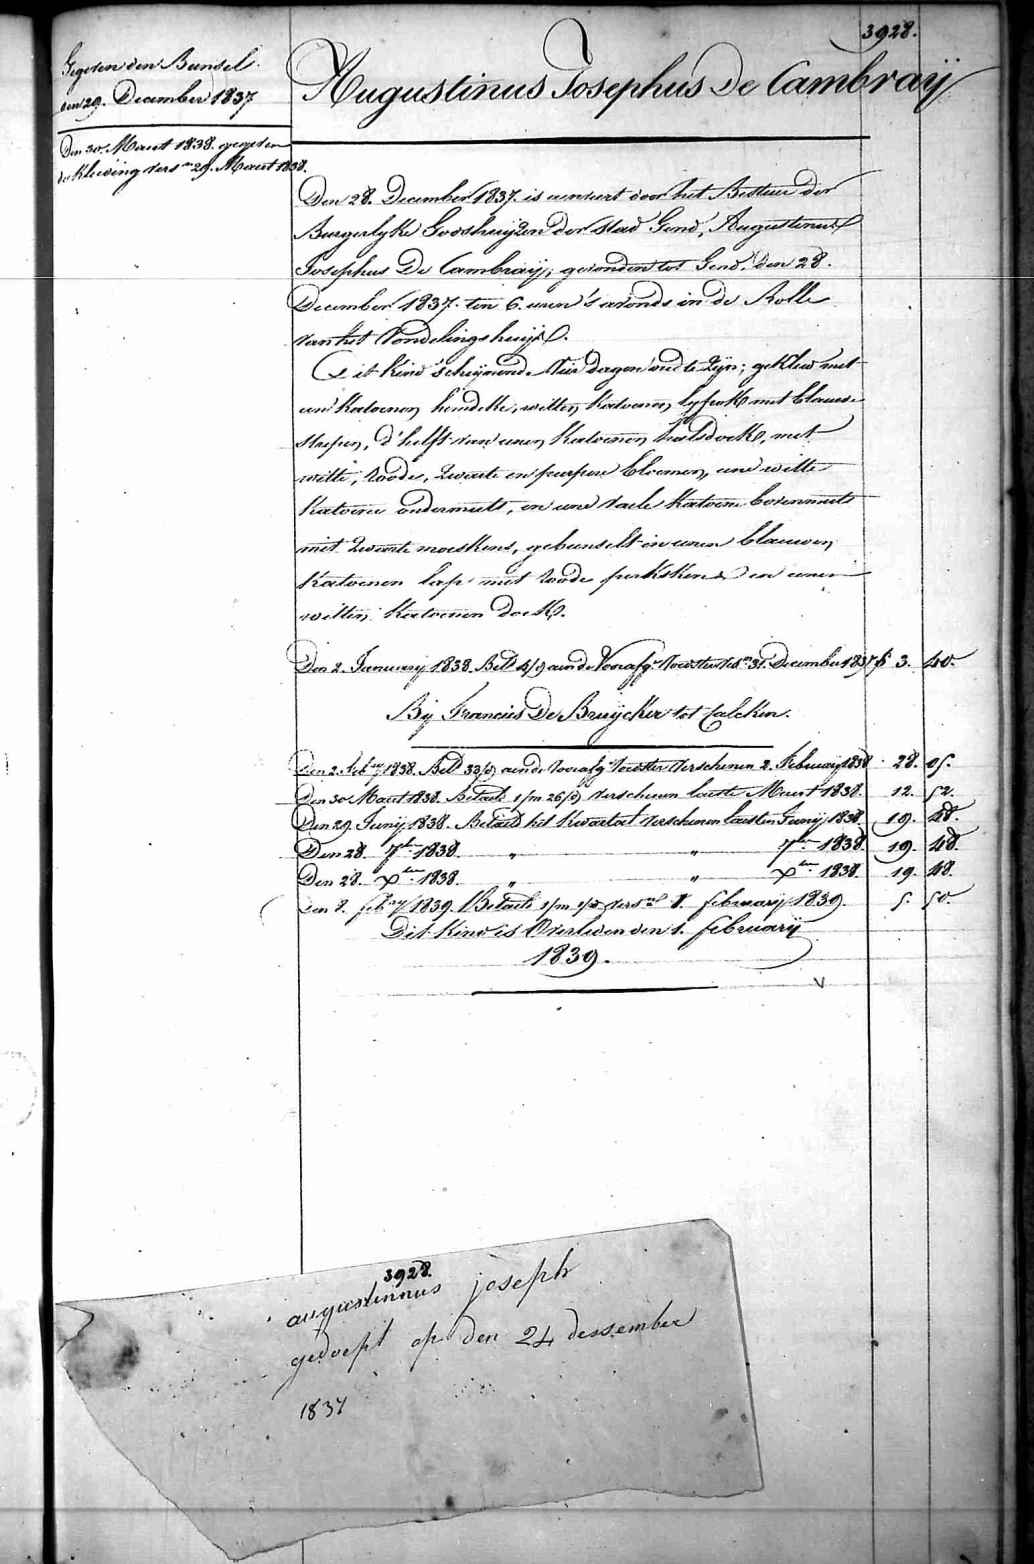 3928.
Gegeven den Bunsel.
den 29. December 1837
Den 30. Maart 1838. gegeven
de Kleeding vers.en 29. Maart 1838.
Augustinus Josephus De Cambraÿ
Den 28. December 1837. is aenveert door het Bestuur der
Burgerlyke Godshuÿzen der stad Gend, Augustinus
Josephus De Cambraÿ, gevonden tot Gend, den 28.
December 1837. ten 6. uren 's avonds in de Rolle
van het Vondelingshuÿs.
Dit kind schÿnende vier dagen oud te zÿn; gekleed met
een katoenen hemdeke, witten katoenen lyfrok met blauwe
strepen, d'helft van eenen katoenen halsdoek, met
witte, roode, zwarte en purpere bloemen, eene witte
katoene ondermuts, en eene vaele katoene bovenmuts
met zwarte moeskens, gebunselt in eenen blauwen
katoenen lap met roode perkskens en eenen
witten katoenen doek.
Den 2. January 1838. Bet.d 4/d aende Voorafg. Voedster vers.en 31. December 1837 f. 3. 40.
Bÿ Francies De Bruÿcker tot Calcken.
Den 2. Feb.ry 1838. Bet.d 33/d aende voorafg. voedster verschenen 2. February 1838 28. 05.
Den 30 Maart 1838. Betaelt 1/m 26/d verschenen laeste Maert 1838. 12. 52.
Den 29. Junÿ 1838. Betaelt het kwartael verschenen laesten Junÿ 1838. 19. 48.
Den 28. 7.ber 1838. " " 7.ber 1838. 19. 48.
Den 28. X.ber 1838. " " X.ber 1838. 19. 48.
Den 8. feb.ry 1839. Betaelt 1/m 1/d vers.en 1. february 1839. 5. 50.
Dit kind is Overleden den 1. februarÿ
1839.
3928.
augustinnus joseph
gedoept op den 24 dessember
1837